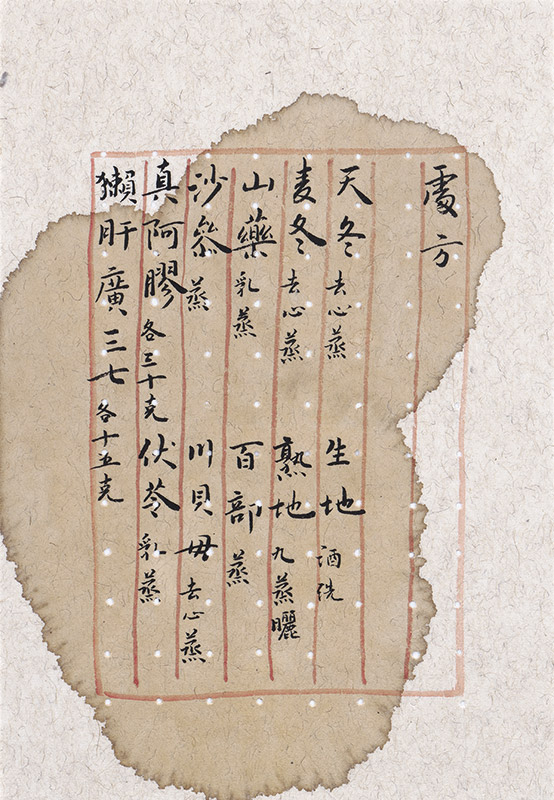 處方
天冬 去心蒸 生地 酒洗
麦冬 去心蒸 熟地 九蒸曬
山藥 乳蒸 百部 蒸
沙參 蒸 川貝毋 去心蒸
真阿膠 各三十克 伏苓 乳蒸
獺肝 廣三七 各十五克